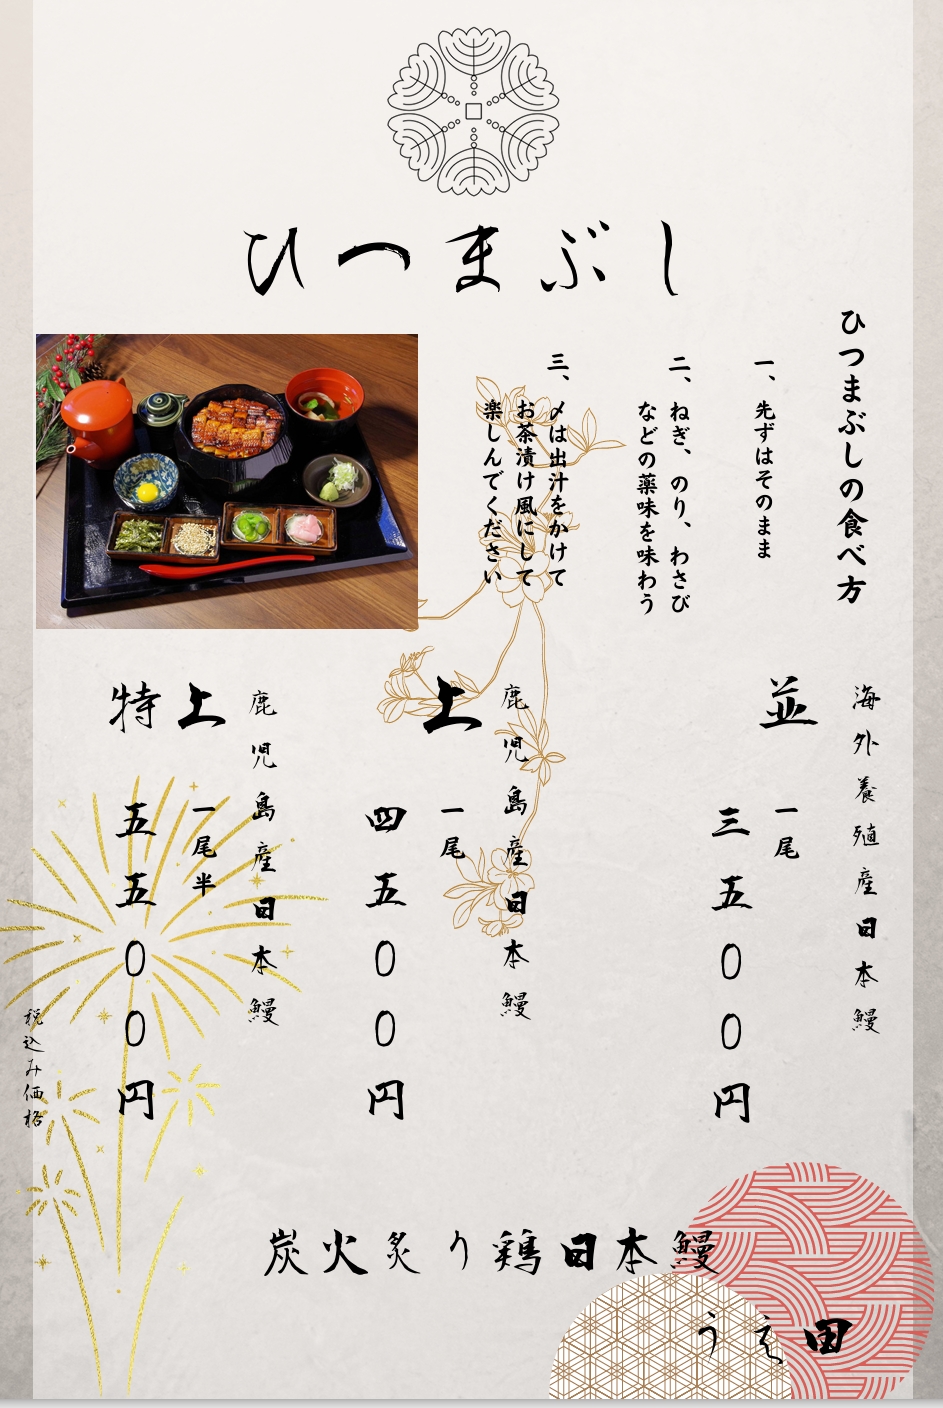 ひつまぶし
ひつまぶしの食べ方
一、先ずはそのまま
二、ねぎ、のり、わさび
などの薬味を味わう
三、〆は出汁をかけて
お茶漬け風にして
楽しんでください
海外養殖産日本鰻
並
一尾
三五00円
鹿児島産日本鰻
上
一尾
四五00円
鹿児島産日本鰻
特上
一尾半
五五00円
税込み価格
炭火炙り鶏日本鰻
うえ田